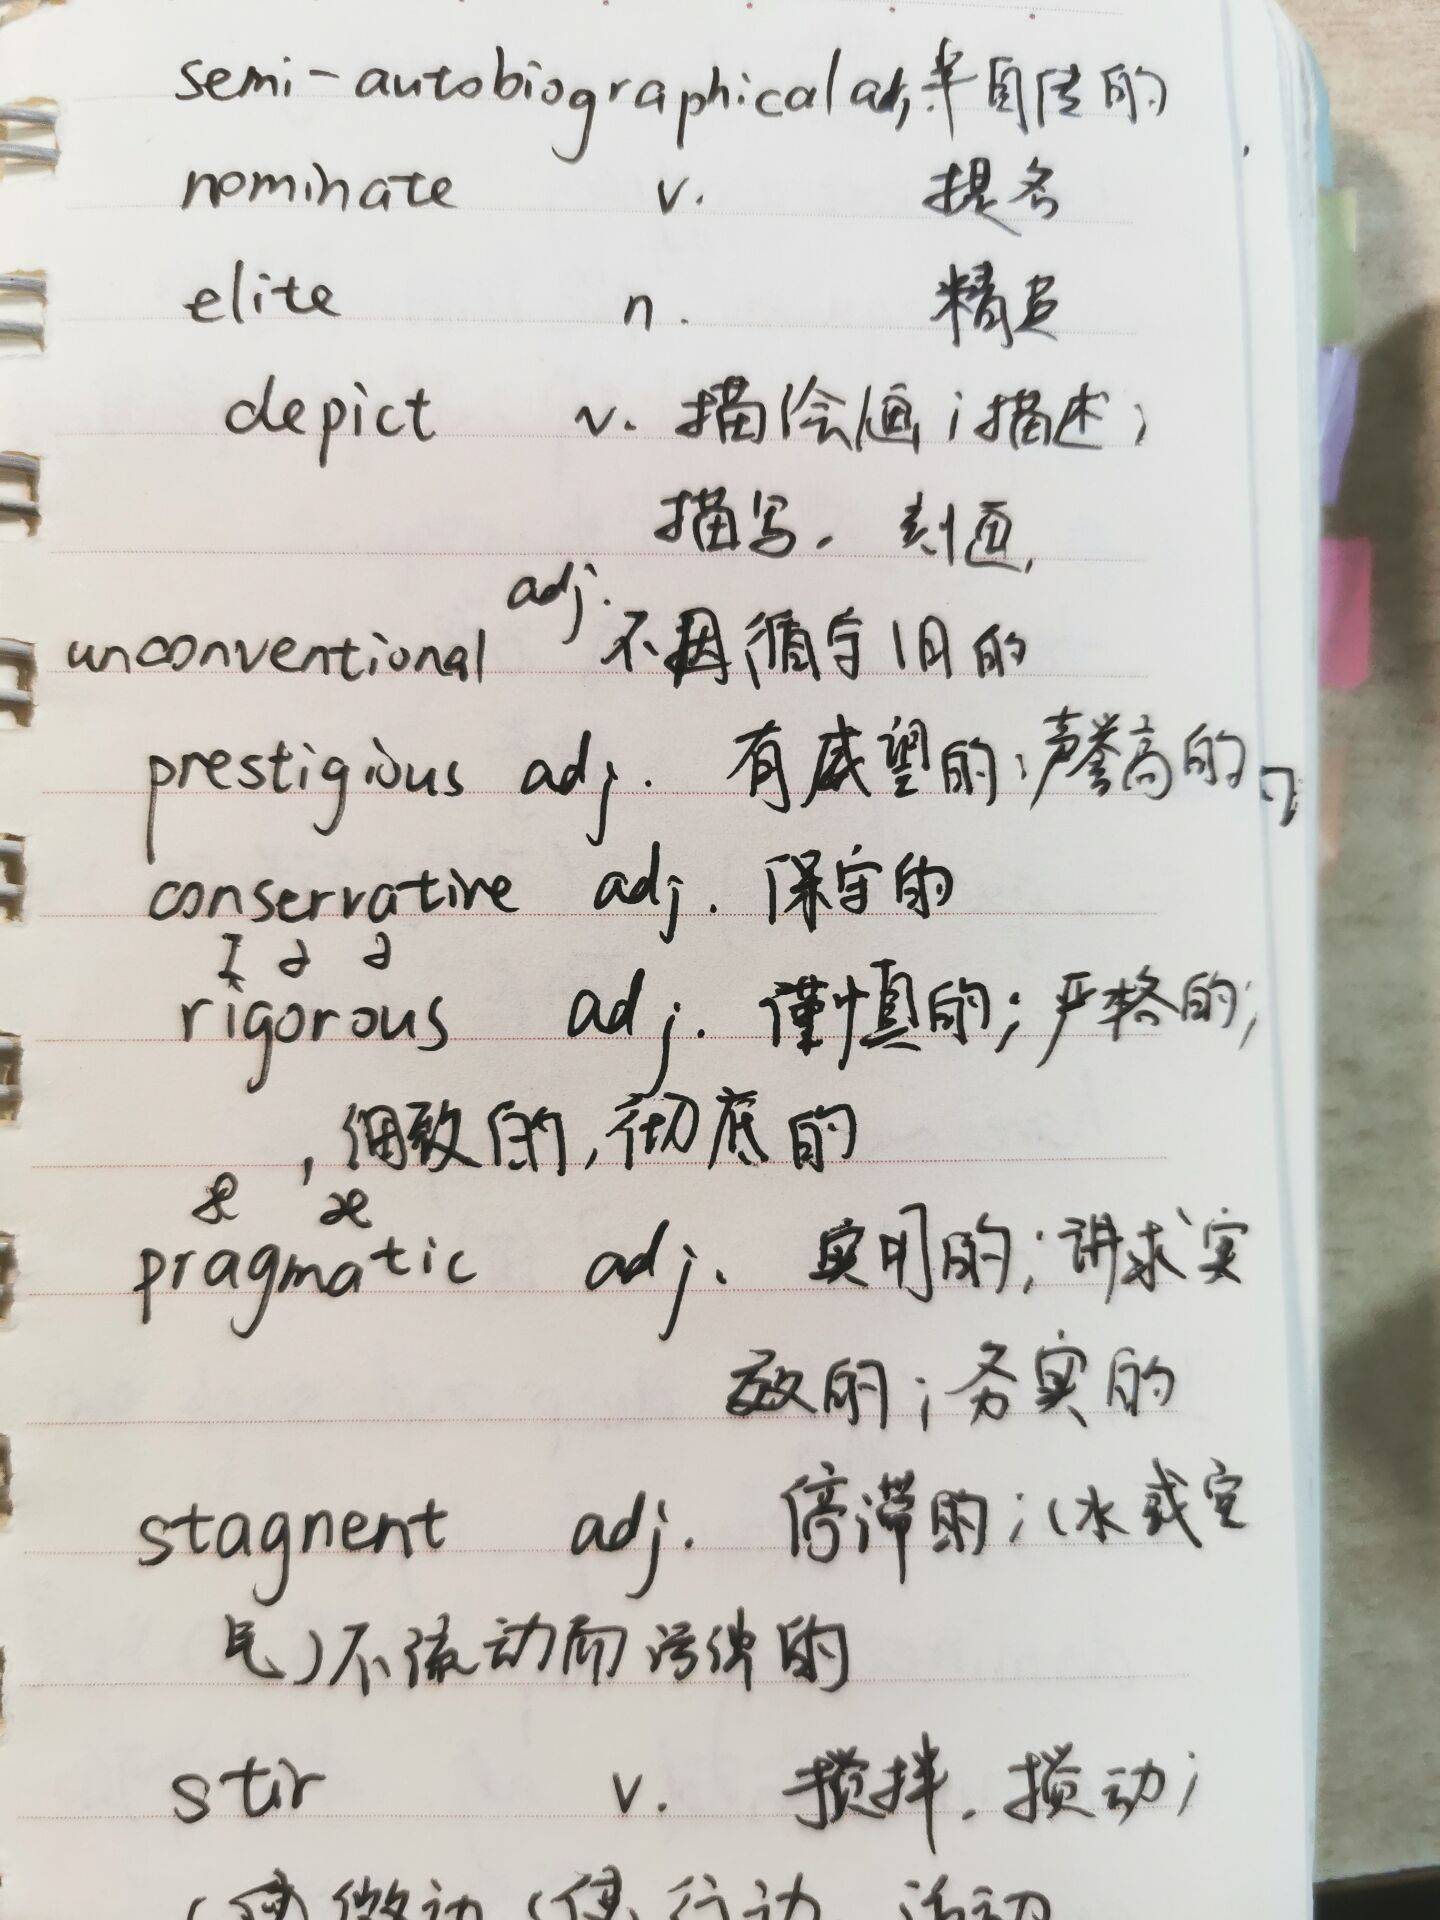 semi-autobiographical adj 半自传的
nominate v. 提名
elite n. 精英
depict v. 描绘画；描述；
描写．刻画．
adj.
unconventional 不因循守旧的
prestigious adj. 有威望的；声誉高的
conservative adj. 保守的
I ə ə
rigorous adj. 谨慎的；严格的；
，细致的，彻底的
æ ˈæ
pragmatic adj. 实用的；讲求实
效的；务实的
stagnent adj. 停滞的；（水或空
气）不流动而污浊的
stir v. 搅拌．搅动；
（使）微动（使 行动 活动